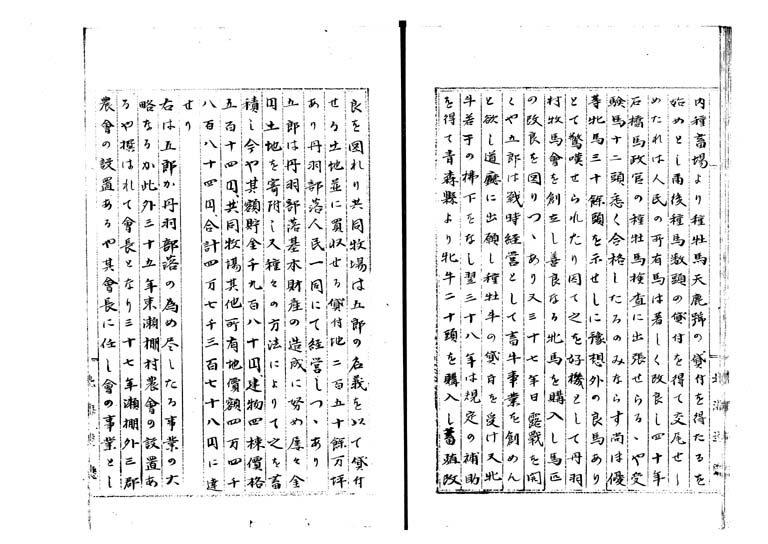 内種畜場より種牡馬天鹿号の貸付を得たるを
始めとし雨後種馬数頭の貸付を得て交尾せし
めたれは人民の所有馬は著しく改良し四十年
石橋馬政官の種牡馬検査に出張せらるゝや受
験馬十二頭悉く合格したるのみならす尚ほ優
等牝馬三十餘頭を示せしに豫想外の良馬あり
とて驚嘆せられたり因て之を好機として丹羽
村牧馬會を創立し善良なる牝馬を購入し馬匹
の改良を図りつゝあり又三十七年日露戰を開
くや五郎は戰時経営として畜牛事業を創めん
と欲し道廳に出願し種牡牛の貸付を受け又北
牛若干の拂下をなし翌三十八年は規定の補助
を得て青森縣より牝牛二十頭を購入し蕃殖改
良を図れり共同牧場は五郎の名義を以て貸付
せる土地並に買収せる貸付地二百五十餘万坪
あり丹羽部落人民一同にて経営しつゝあり
五郎は丹羽部落基本財産の造成に努め屡々金
円土地を寄附し又種々の方法によりて之を蓄
積し今や其額貯金千九百八十円建物四棟價格
五百十四円共同牧場其他所有地價額四万四千
八百八十四円合計四万七千三百七十八円に達
せり
右は五郎か丹羽部落の為め尽したる事業の大
略なるか此外三十五年東瀬棚村農會の設置あ
るや撰はれて會長となり三十七年瀬棚外三郡
農會の設置あるや其會長に任し會の事業とし
北海道廳